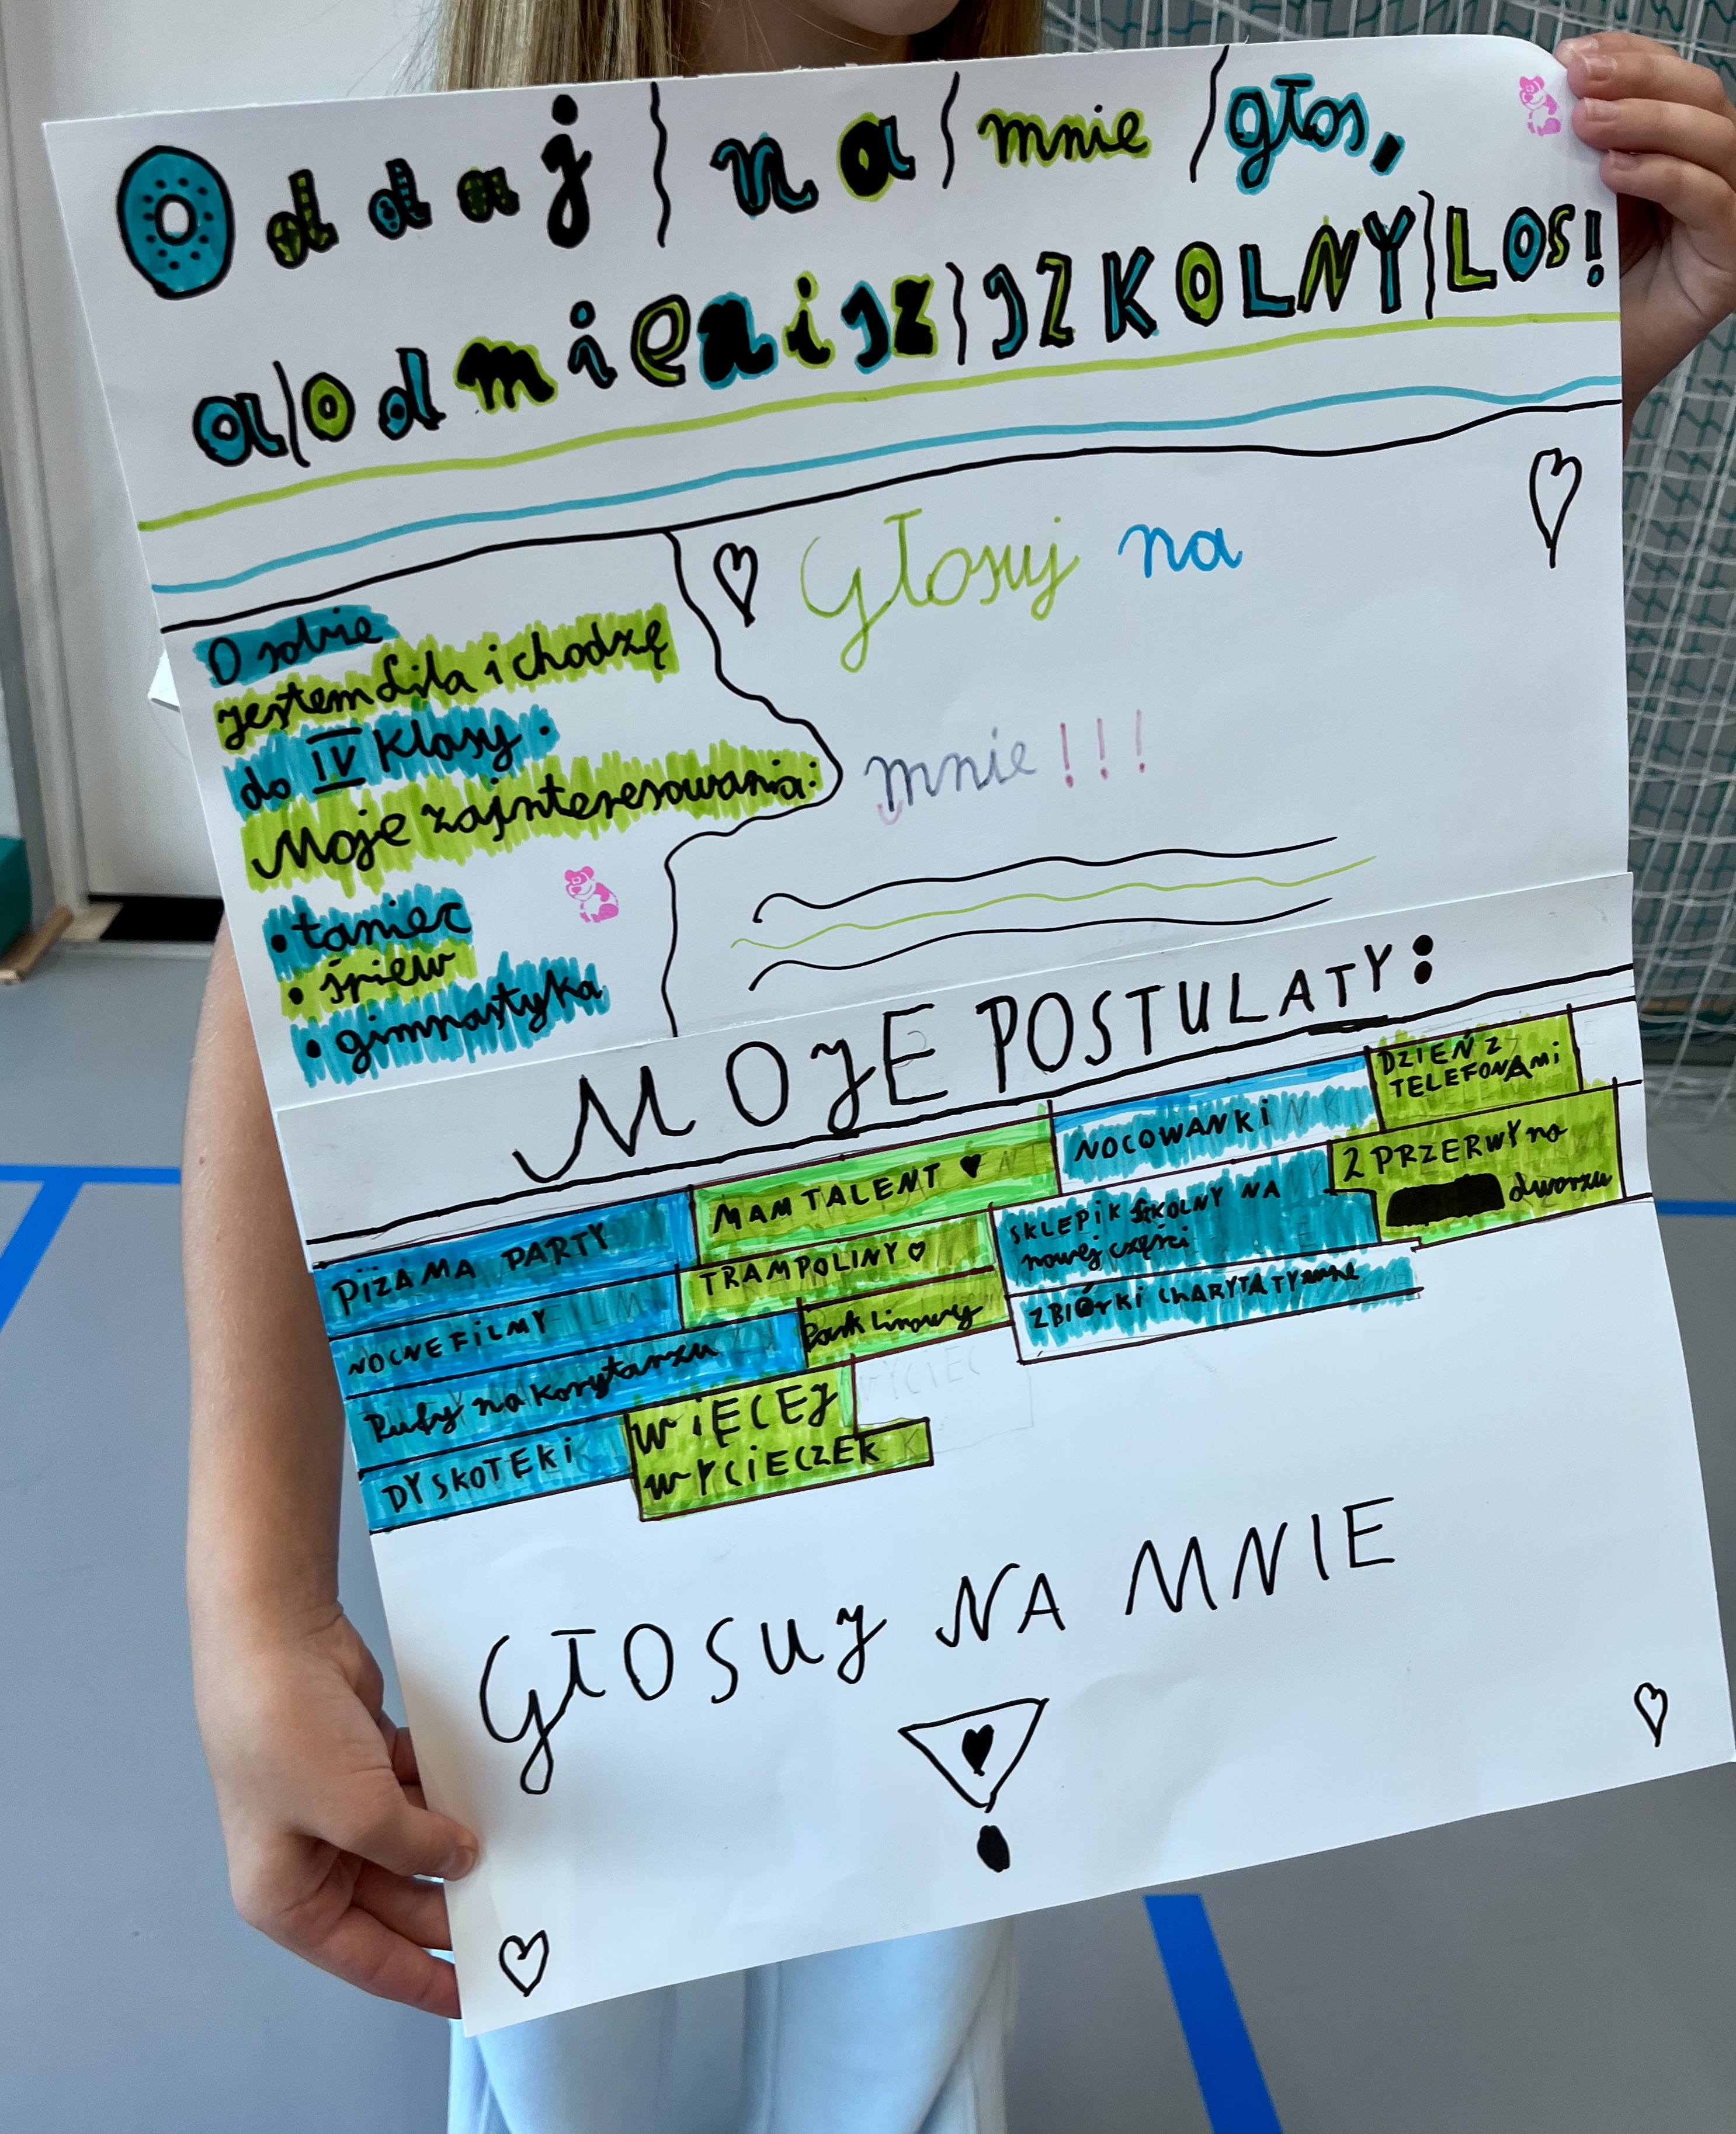 Oddaj na mnie głos,
a odmienisz SZKOLNY LOS!
O sobie
jestem Lila i chodzę
do IV Klasy.
Moje zainteresowania:
• taniec
• śpiew
• gimnastyka
Głosuj na
mnie!!!
MOJE POSTULATY:
PIŻAMA PARTY
NOCNE FILMY
Pufy na korytarzu
DYSKOTEKI
MAM TALENT
TRAMPOLINY
Park linowy
WIĘCEJ
WYCIECZEK
NOCOWANKI
SKLEPIK SZKOLNY NA
nowej części
ZBIÓRKI CHARYTATYwne
DZIEŃ Z
TELEFONAMi
2 PRZERWY na
dworzu
GŁOSUJ NA MNIE